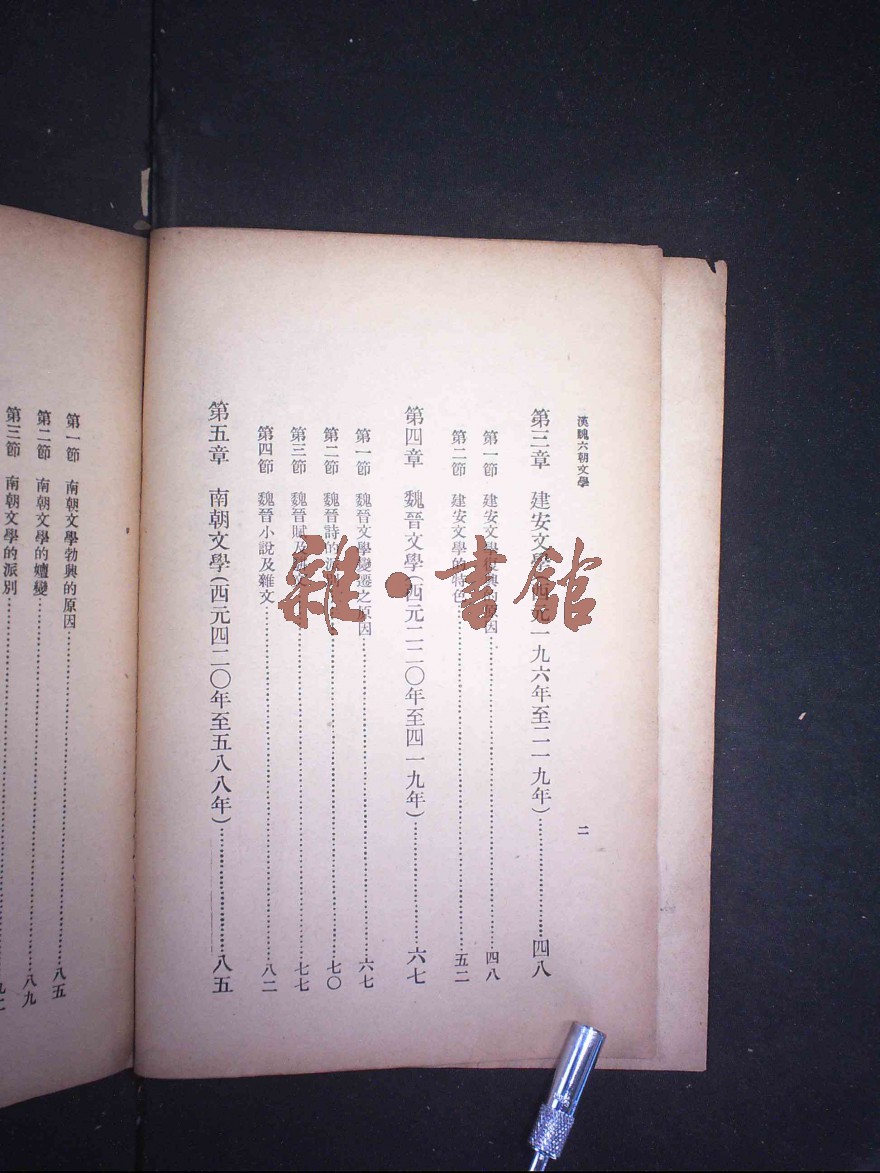 漢魏六朝文學
二
第三章 建安文學(西元一九六年至二一九年)……四八
第一節 建安文學 興的原因……四八
第二節 建安文學的特色……五二
第四章 魏晉文學(西元二二〇年至四一九年)……六七
第一節 魏晉文學變遷之原因……六七
第二節 魏晉詩的派別……七〇
第三節 魏晉賦及……七七
第四節 魏晉小說及雜文……八二
第五章 南朝文學(西元四二〇年至五八八年)……八五
第一節 南朝文學勃興的原因……八五
第二節 南朝文學的嬗變……八九
第三節 南朝文學的派別……
雜·書館